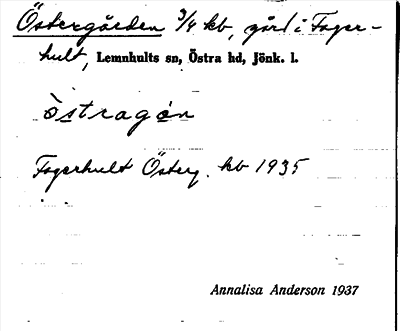 Östergården 3/4 kb, gård i Fager-
hult, Lemnhults sn, Östra hd, Jönk. l.
östragȯn
Fagerhult Österg. kb 1935
Annalisa Anderson 1937